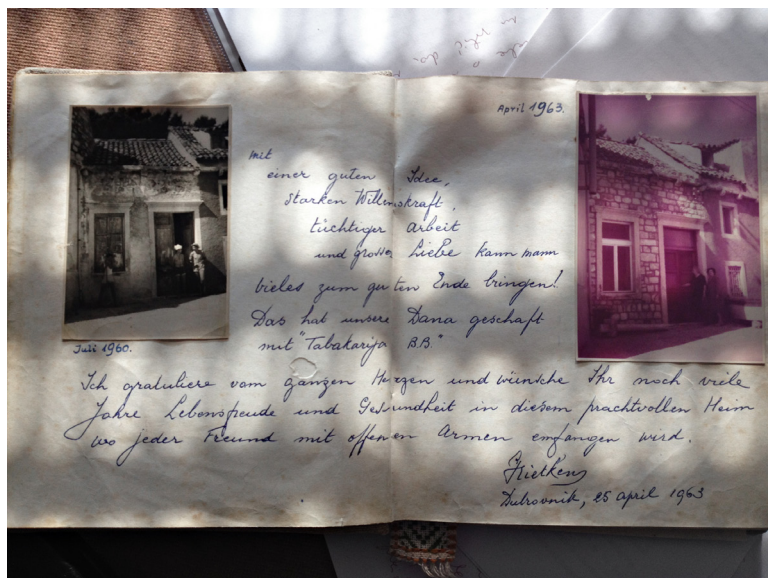 April 1963.
mit
einer guten Idee,
starken Willenskraft,
tüchtiger Arbeit
und grosser Liebe kann mann
vieles zum guten Ende bringen!
Das hat unsere Dana geschaft
mit "Tabakarija BB."
Juli 1960.
Ich gratuliere vom ganzen Herzen und wünsche Ihr noch viele
Jahre Lebensfreude und Gesundheit in diesem prachtvollen Heim
wo jeder Freund mit offenen Armen empfangen wird.
Dubrovnik, 25 April 1963